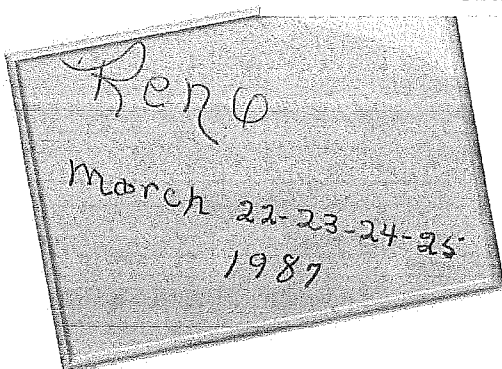 Reno
March 22-23-24-25
1987